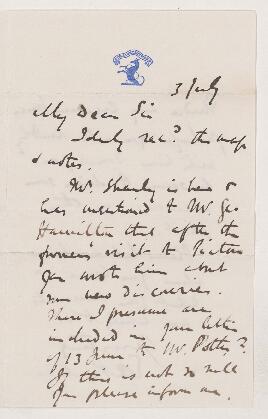 3 July
My Dear Sir
I duly rec.d the map
& notes.
Mr. Shanly is here &
has mentioned to Mr. Geo
Hamilton that after the
visit to Pictou
you wrote him about
new discoveries.
These I presume are
included in your letter
of 13 June to Mr. Potter?
If this is not so will
you please inform me.